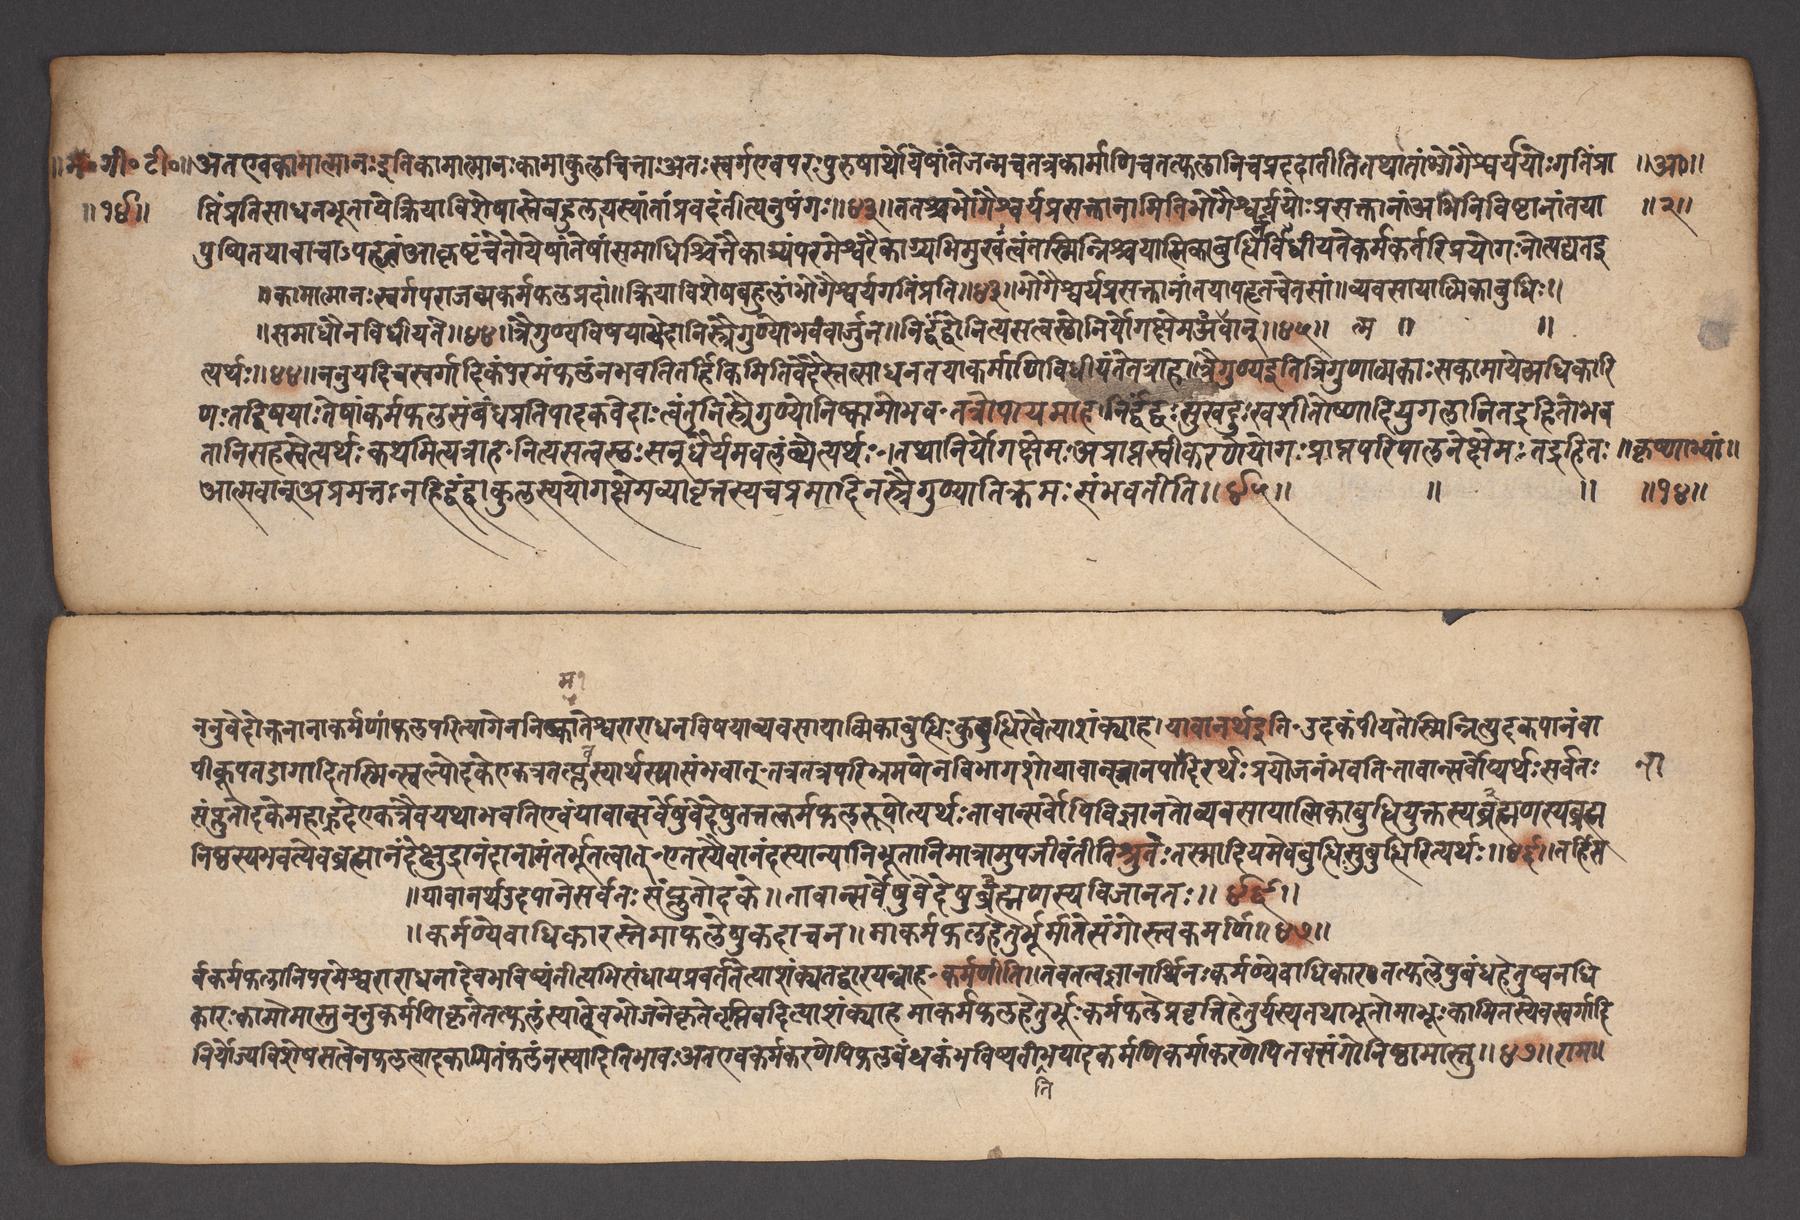 ॥भ॰गी॰टी॰॥ अतएवकामात्मानःइतिकामात्मानःकामाकुलचित्ताःअतःस्वर्गएवपरःपुरुषार्थोयेषांतेजन्मचतत्रकर्माणिचतत्फलानिचप्रददातीतितथातांभोगैश्वर्ययोःगतिंप्रा ॥अ॰॥
॥१४॥ प्तिंप्रतिसाधनभूतायेक्रियाविशेषास्तेबहुलायस्यांतांप्रवदंतीत्यनुषंगः॥४३॥ततश्चभोगैश्वर्यप्रसक्तानामितिभोगैश्वर्ययोःप्रसक्तानांअभिनिविष्टानांतया ॥२॥
पुष्पितयावाचाऽपहृतंआकृष्टंचेतोयेषांतेषांसमाधिश्चित्तैकाग्र्यंपरमेश्वरैकाग्र्यभिमुखंत्वंतस्मिन्निश्चयात्मिकाबुद्धिर्नविधीयतेकर्मकर्तरिप्रयोगःनोत्पद्यतइ
॥कामात्मानःस्वर्गपराजन्मकर्मफलप्रदां॥क्रियाविशेषबहुलांभोगैश्वर्यगतिंप्रति॥४३॥भोगैश्वर्यप्रसक्तानांतयापहृतचेतसां॥व्यवसायात्मिकाबुद्धिः॥
॥समाधौनविधीयते॥४४॥त्रैगुण्यविषयावेदानिस्त्रैगुण्योभवार्जुन॥निर्द्वंद्वोनित्यसत्वस्थोनिर्योगक्षेमआत्मवान्॥४५॥ त्म ॥ ॥
त्यर्थः॥४४॥ननुयदिचस्वर्गादिकंपरमंफलंनभवतितर्हिकिमितिवेदैस्तत्साधनतयाकर्माणिविधीयंतेतत्राह॥त्रैगुण्यइतित्रिगुणात्मकाःसकामायेअधिकारि
णःतद्विषयाःतेषांकर्मफलसंबंधप्रतिपादकावेदाःत्वंतुनिस्त्रैगुण्योनिष्कामोभव॰तत्रोपायमाह॥निर्द्वंद्वःसुखदुःखशीतोष्णादियुगलानितद्रहितोभव
तानिसहस्वेत्यर्थःकथमित्यत्राह॰नित्यसत्वस्थःसन्धैर्यमवलंब्येत्यर्थः॰॥तथानिर्योगक्षेमःअप्राप्तस्वीकरणंयोगःप्राप्तपरिपालनंक्षेमःतद्रहितः ॥कृष्णाभ्यां॥
आत्मवान्अप्रमत्तःनहिद्वंद्वाकुलस्ययोगक्षेमव्यापृतस्यचप्रमादिनस्त्रैगुण्यातिक्रमःसंभवतीति॥४५॥ ॥ ॥ ॥१४॥
म१
ननुवेदोक्तनानाकर्मणांफलपरित्यागेननिष्कामतेश्वराराधनविषयाव्यवसायात्मिकाबुद्धिःकुबुद्धिरेवेत्याशंक्याह॥यावानर्थइति॰उदकंपीयतेस्मिन्नित्युदकपानंवा
पीकूपतडागादितस्मिन्स्वल्पोदकेएकत्रकृत्स्नस्यार्थस्यासंभवात्॰तत्रतत्रपरिभ्रमणेनविभागशोयावान्स्नानपानादिरर्थःप्रयोजनंभवति॰तावान्सर्वोप्यर्थःसर्वतः ना
संप्लुतोदकेमहाह्रदेएकत्रैवयथाभवतिएवंयावान्सर्वेषुवेदेषुतत्तत्कर्मफलरूपोत्यर्थःतावान्सर्वोपिविजानतोव्यवसायात्मिकाबुद्धियुक्तस्यब्राह्मणस्यब्रह्म
निष्ठस्यभवत्येवब्रह्मानंदेक्षुद्रानंदानामंतर्भूतत्वात्॰एतस्यैवानंदस्यान्यानिभूतानिमात्रामुपजीवंतीतिश्रुतेःतस्मादियमेवबुद्धिःसुबुद्धिरित्यर्थः॥४६॥तर्हिस
॥यावानर्थउदपानेसर्वतःसंप्लुतोदके॥तावान्सर्वेषुवेदेषुब्राह्मणस्यविजानतः॥४६॥
॥कर्मण्येवाधिकारस्तेमाफलेषुकदाचन॥माकर्मफलहेतुर्भूर्मातेसंगोस्त्वकर्मणि॥४७॥
र्वकर्मफलानिपरमेश्वराराधनादेवभविष्यंतीत्यभिसंधायप्रवर्त्ततेत्याशंक्यतद्वारयन्नाह॰कर्मणीति॥तवतत्वज्ञानार्थिनःकर्मण्येवाधिकारःतत्फलेषुबंधहेतुष्वनधि
कारःकामोमास्तुननुकर्मणिकृतेतत्फलंस्यादेवभोजनेकृतेतृप्तिवदित्याशंक्याहमाकर्मफलहेतुर्भूःकर्मफलेप्रवृत्तिहेतुर्यस्यतथाभूतोमाभूःकामितस्यैवस्वर्गादि
नियोज्यविशेषसत्वेनफलत्वादकामितंफलंनस्यादितिभावःअतएवकर्मकरणेपिफलबंधकंभविष्यतीभयादकर्मणिकर्माकरणेपितवसंगोनिष्ठामास्तु॥४७॥राम॥
ति